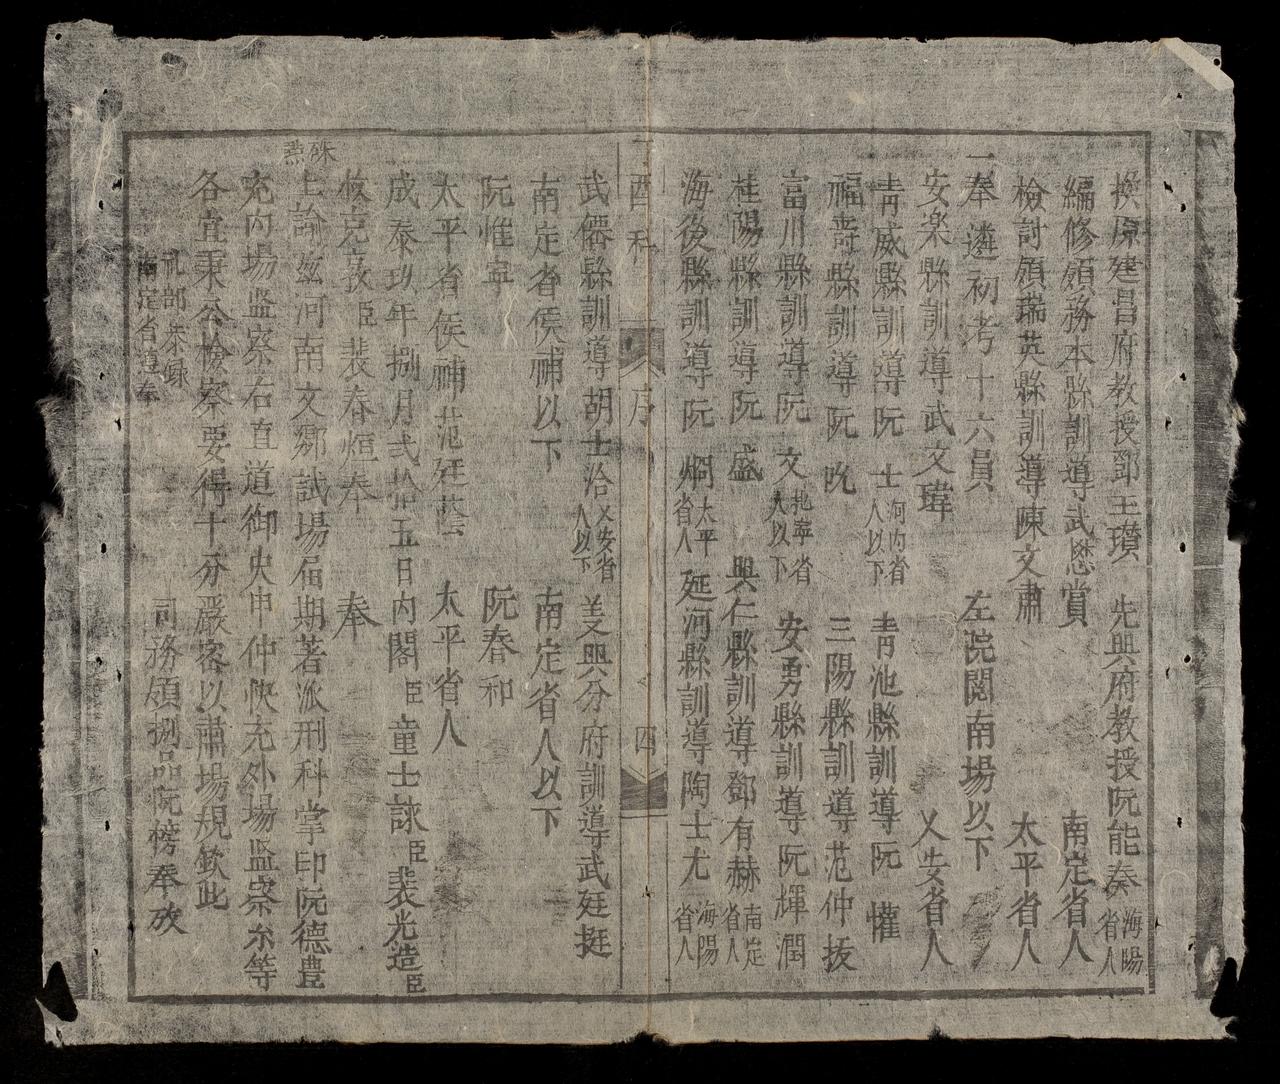 換原建昌府教授鄧王瓚　先興府教授阮能奏海陽省人
編修領務本縣訓導武懋賞　南定省人
檢討領瑞英縣訓導陳文肅　太平省人
一奉遴初考十六員　左院閱南場以下
安楽縣訓導武文瑋　乂安省人
青威縣訓導阮士河内省人以下　青池縣訓導阮懽
福壽縣訓導阮吮　三陽縣訓導范仲抜
富川縣訓導阮文北寧省人以下　安勇縣訓導阮揮潤
桂陽縣訓導阮盛　興仁縣訓導鄧有赫南定省人
海後縣訓導阮烱太平省人　延河縣訓導陶士尤海陽省人
酉科　序　四
武僊縣訓導胡士洽乂安省人以下　美興分府訓導武廷挺
南定省侯補以下　南定省人以下
阮惟寧　阮春和
太平省侯補范廷蕓　太平省人
成泰玖年捌月弍拾五日内閣臣童士詠臣裴光造臣
枚克敦臣裴春烜奉　奉
硃点
上諭茲河南文鄉試場届期著派刑科掌印阮德豊
充内場监察右直道御史申仲㤥充外場监察尒等
各宜秉公檢察要得十分嚴密以肅場規欽此
礼部恭録
南定省遵奉　司務領捌品阮榜奉攷